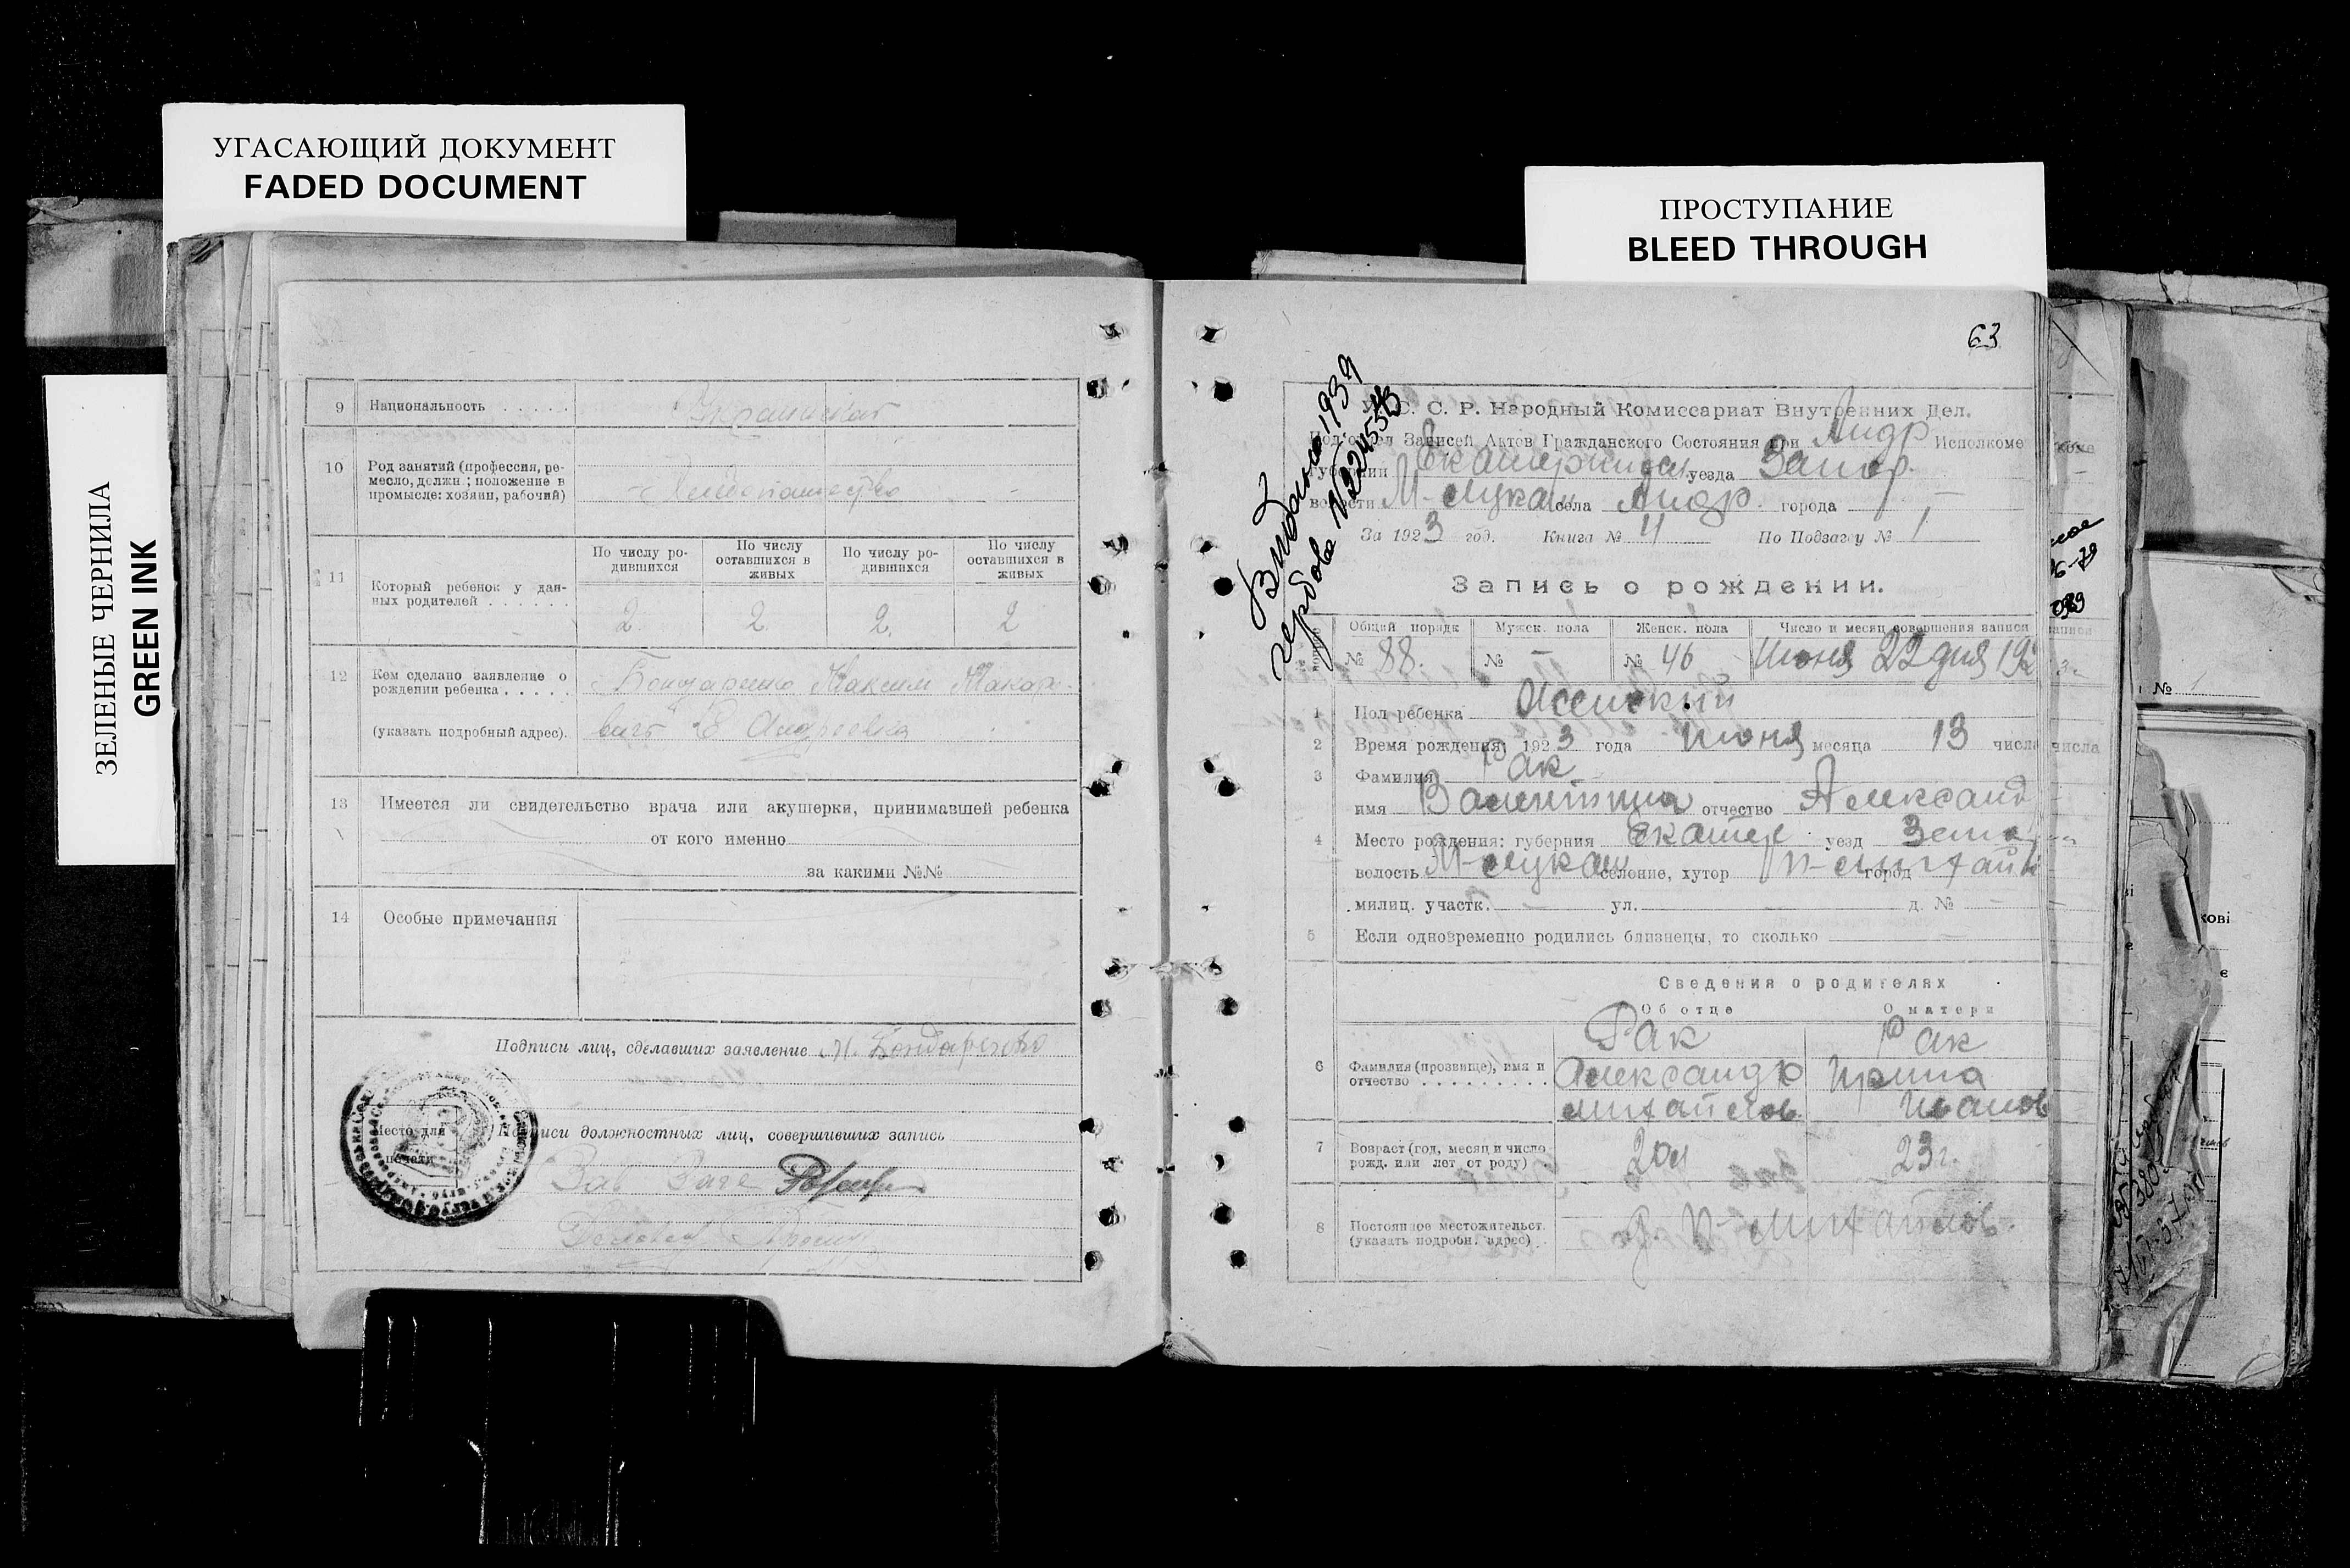 УГАСАЮЩИЙ ДОКУМЕНТ
FADED DOCUMENT
ПРОСТУПАНИЕ
BLEED THROUGH
ЗЕЛЕНЫЕ ЧЕРНИЛА
GREEN INK
9 Национальность . . . . . Украинская
10 Род занятий (профессия, ре-
месло, должн.; положение в
промысле: хозяин, рабочий)
Хлебопашество
11 Который ребенок у дан-
ных родителей . . . . . .
По числу ро-
дившихся
По числу
оставшихся в
живых
По числу ро-
дившихся
По числу
оставшихся в
живых
2 2 2 2
12 Кем сделано заявление о
рождении ребенка . . . . .
Бондаренко Максим Макар-
(указать подробный адрес).
вич с Андреевка
13 Имеется ли свидетельство врача или акушерки, принимавшей ребенка
от кого именно
за какими №№
14 Особые примечания
Подписи лиц, сделавших заявление М. Бондаренко
Место для
печати
Подписи должностных лиц, совершивших запись
Зав Загс
63
Видано 1939
У. С. С. Р. Народный Комиссариат Внутренних Дел.
Подотдел Записей Актов Гражданского Состояния при Андр Исполкоме
губернии Екатеринослав уезда Запор.
волости М-Лукаш села Андр. города —
За 1923 год. Книга № 11 По Подзагсу № 1
Запись о рождении.
Общий порядк Мужск. пола Женск. пола Число и месяц совершения записи
№ 88. № — № 46 Июня 22 дня 192
1 Пол ребенка Женский
2 Время рождения: 1923 года Июня месяца 13 числа
3 Фамилия Рак
имя Валентина отчество Александ
4 Место рождения: губерния Екатер уезд Запо
волость М-Лукаш селение, хутор П-Михайл город
милиц. участк. — ул. д. №
5 Если одновременно родились близнецы, то сколько
Сведения о родителях
Об отце О матери
6 Фамилия (прозвище), имя и
отчество . . . . . . . . . .
Рак
Александр
Михайлов.
Рак
Ирина
Иванов
7 Возраст (год, месяц и число
рожд. или лет от роду) .
20 л 23 г.
8 Постоянное местожительст.
(указать подробн. адрес) .
П-Михайлов.